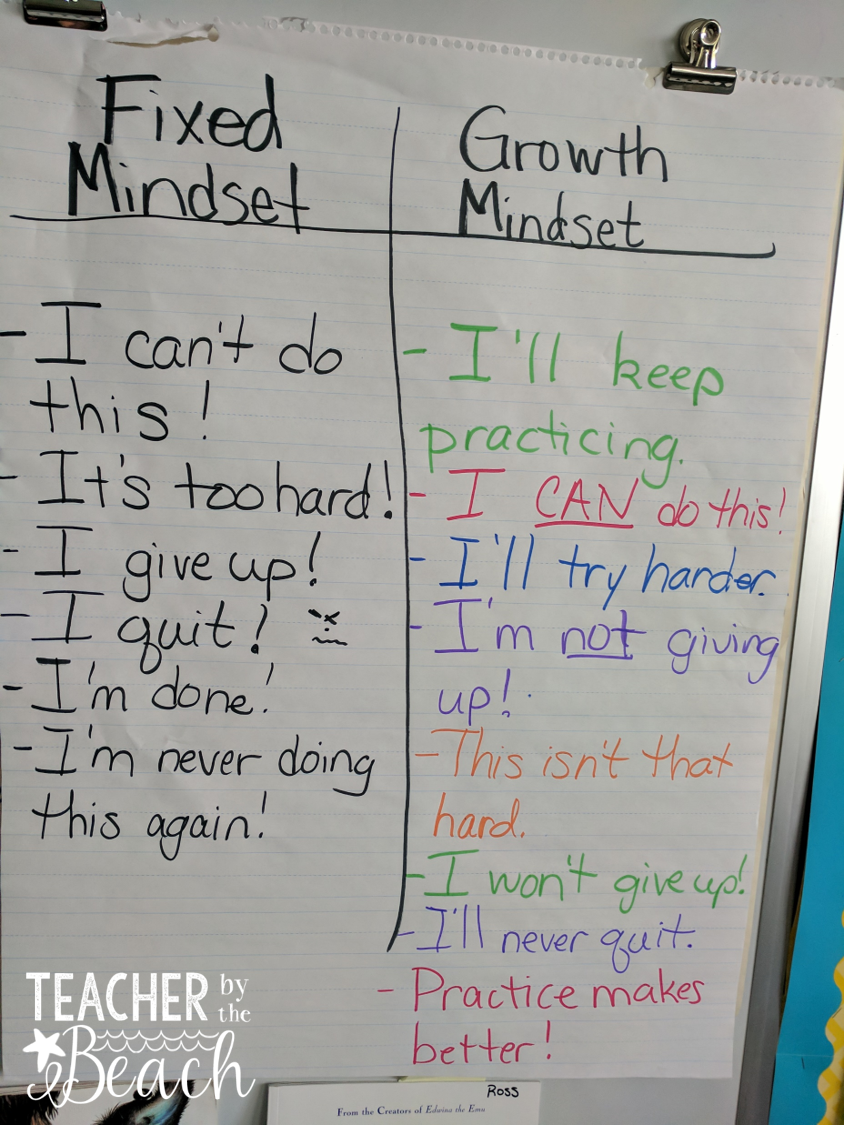 Fixed
Mindset
- I can't do
this!
- It's too hard!
- I give up!
- I quit!
- I'm done!
- I'm never doing
this again!
Growth
Mindset
- I'll keep
practicing.
- I CAN do this!
- I'll try harder.
- I'm not giving
up!
- This isn't that
hard.
- I won't give up!
- I'll never quit.
- Practice makes
better!
TEACHER by
the
Beach
ROSS
From the Creators of Edwina the Emu